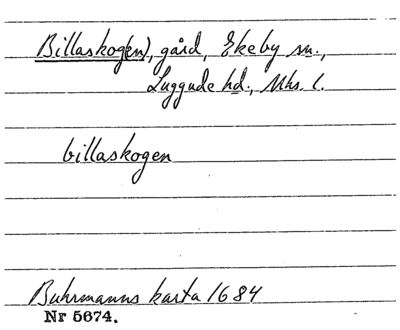 Billaskog(en), gård, Ekeby sn.,
Luggude hd., Mhs. l.
billaskogen
Buhrmanns karta 1684
Nr 5674.